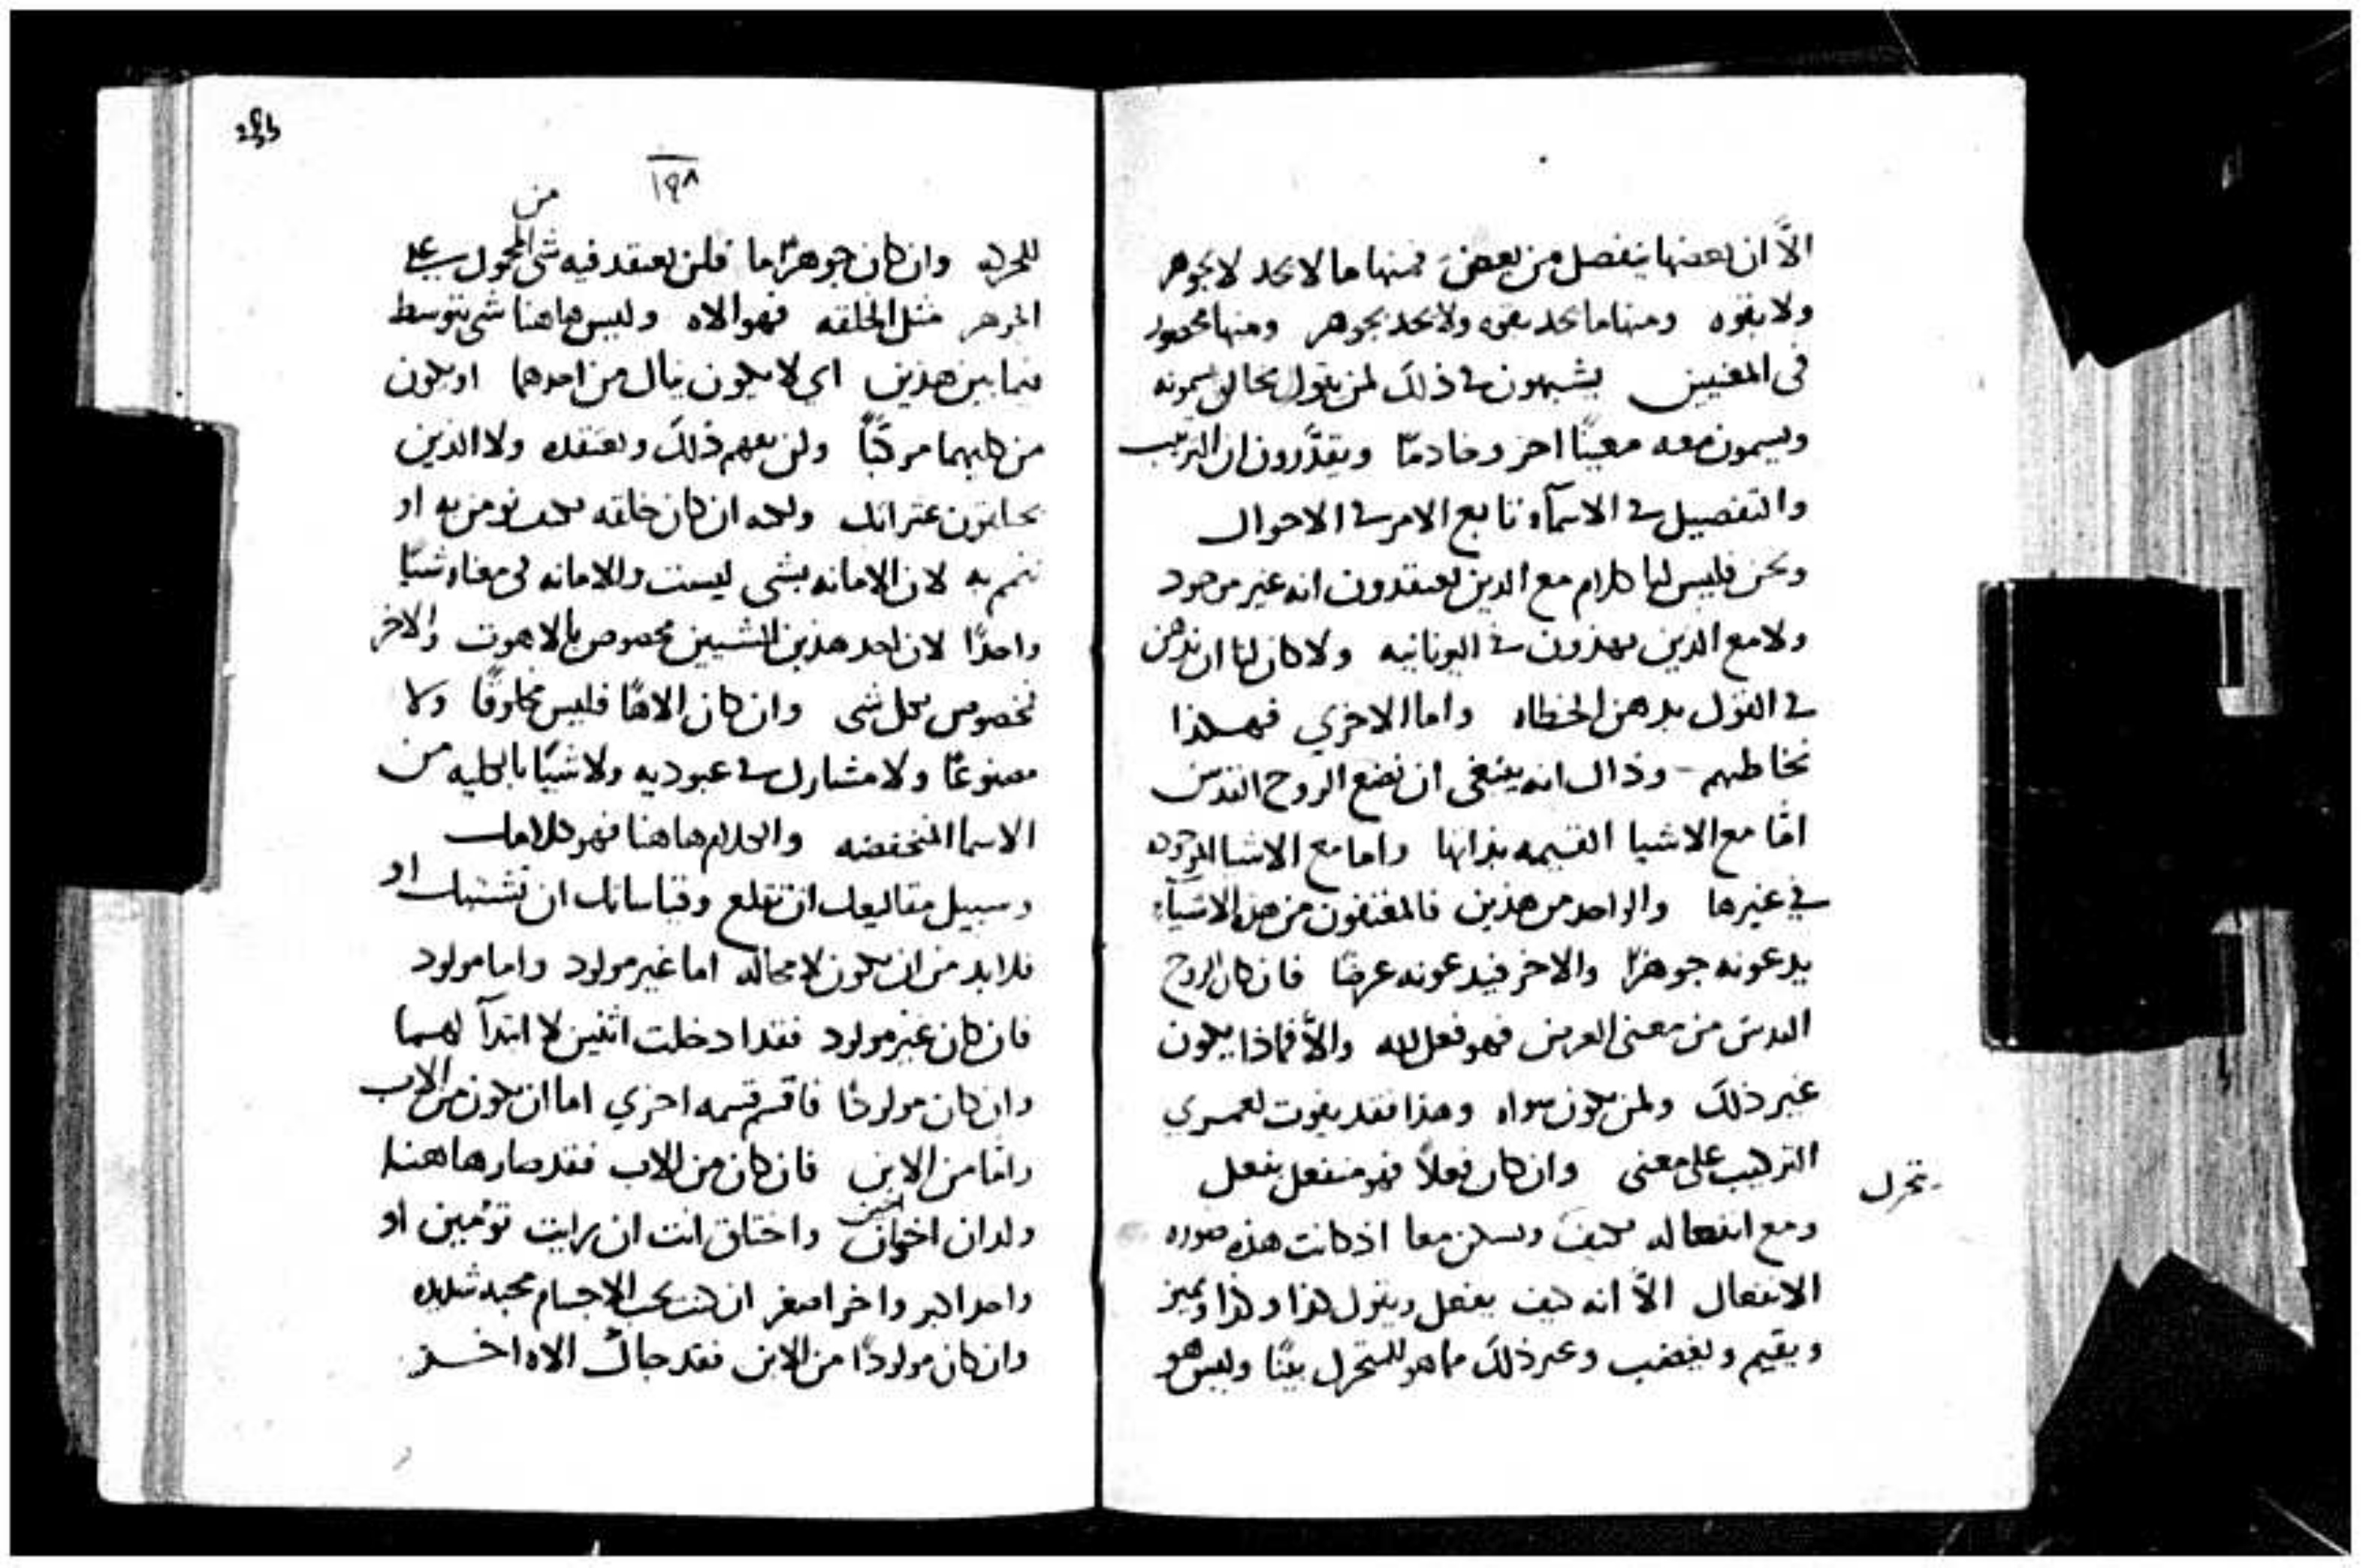 الاّ ان بعضها ينفصل من بعض فمنها ما لا يحد لا بجوهر
ولا بقوه ومنها ما يحد بقوه ولا يحد بجوهر ومنها محدود
في المعنيين يشبهون في ذلك لمن يقول بخالق يسمونه
ويسمون معه معينًا اخر وخادمًا ويقدّرون ان الترتيب
والتفصيل في الاسمآء تابع الامر في الاحوال
ونحن فليس لنا كلام مع الدين يعتقدون انه غير موجود
ولا مع الدين يهذرون في اليونانيه ولا كان لنا ان ندهن
في القول بدهن الخطاه واما الاخري فهكذا
نخاطبهم وذاك انه ينبغي ان نضع الروح القدس
امّا مع الاشيا القيمه بذاتها واما مع الاشيا الموجوده
في غيرها والواحد من هذين فالمفتقون من هذه الاشيآء
يدعونه جوهرًا والاخر فيدعونه عرضًا فان كان الروح
القدس من معنى العرض فهو فعل لله والاّ فماذا يكون
غير ذلك ولمن يكون سواه وهذا فقد يفوت لعمري
التركيب على معنى وان كان فعلاً فهو منفعل بفعل
تحرك
ومع انفعاله يكف ويسكن معا اذ كانت هذه صوره
الانفعال الاّ انه كيف يفعل ويقول كذا وكذا ويميز
ويقيم ويغضب وغير ذلك مما هو للمتحرك بينًا وليس هو
١٩٨
للحركه وان كان جوهرًا ما فلن يعتقد فيه شي من المحمول على
الجوهر مثل الخلقه فهو الاه وليس هاهنا شي يتوسط
فيما بين هذين اي لا يكون ينال من احدهما او يكون
من كليهما مركبًا ولن يفهم ذلك ويعتقده ولا الذين
يخلقون عنزايل ولكنه ان كان خلقه فكيف نومن به او
نتم به لان الامانه بشي ليست والامانه في معناه شيًا
واحدًا لان احد هذين الشيين مخصوص بالاهوت والاخر
مخصوص بكل شي وان كان الاهًا فليس مخلوقًا ولا
مصنوعًا ولا مشارك في عبوديه ولا شيًا بالكليه من
الاسما المنخفضه والكلام هاهنا فهو كلامك
وسبيل مقاليعك ان تقلع وقياساتك ان تشتبك او
فلا بد من ان يكون لا محاله اما غير مولود واما مولود
فان كان غير مولود فقد ادخلت اثنين لا ابتدآ لهما
وان كان مولودًا فاقسم قسمه اخري اما ان يكون من الاب
وامّا من الابن فان كان من الاب فقد صار هاهنا
ولدان اخوان واختلق انت ان رايت تؤمين او
واحد اكبر واخر اصغر ان كنت تحب الاجسام محبه شديده
وان كان مولودًا من الابن فقد جاك الاه اخر